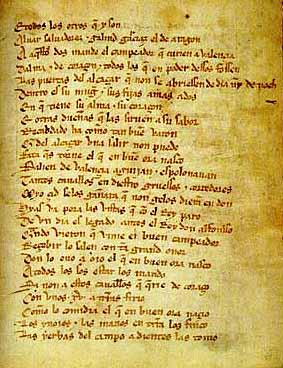 E todos los otros q̃ y son
Aluar saluadorez ⁊ Galind garciaz el de aragon
A aq̃stos dos mando el campeador q̃ curien a valencia
Dalma ⁊ de coraçon ⁊ todos los q̃ en poder dessos fossen
Las puertas del alcaçar q̃ non se abriessen de dia nĩ de noch
Dentro es su mugr̃ ⁊ sus fijas amas ados
En q̃ tiene su alma ⁊ su coraçon
E otras dueñas q̃ las siruen a su sabor
Recabdado ha como tan buẽ varon
Q̃ del alcaçar vna salir non puede
Fata q̃s torne el q̃ en buẽ ora nasco
Salien de valencia aguijan ⁊ espolonauan
Tantos cauallos en diestro gruessos ⁊ corredores
Myo çid selos gañara q̃ non gelos dierã en don
Hyas va pora las vistas q̃ cõ el Rey paro
De vn dia es legado antes el Rey don alfonsso
Q̃ndo vieron q̃ vinie el buen campeador
Reçebir lo salen con tã grand onor
Don lo ouo a oio el q̃ en buen ora nasco
Atodos los sos estar los mando
Si non a estos cauallos q̃ q̃rie de coraçõ
Con vnos .xv. a tr̃ras firio
Como lo comidia el q̃ en buen ora naçio
Los ynoios ⁊ las manos en tr̃ra los finco
Las yerbas del campo a dientes las tomo